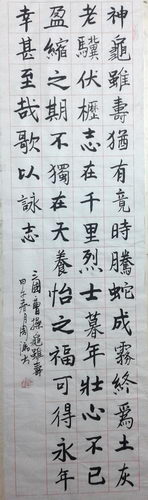 神龜雖壽猶有竟時騰蛇成霧終爲土灰
老驥伏櫪志在千里烈士暮年壯心不已
盈縮之期不獨在天養怡之福可得永年
幸甚至哉歌以詠志
三國曹操龜雖壽
春月周